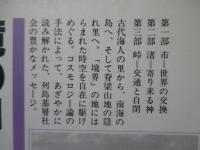 第一部 市=世界の交換
第二部 渚=寄り来る神
第三部 峠=交通と自閉
古代海人の里から、南海の
島へ、そして脊梁山地の隠
れ里へ。「境界」の地には
らまれた時空を自在に駆け
めぐる。コスモロジー論の
手法によって、あざやかに
読み解かれた、列島基層社
会の豊かなメッセージ。